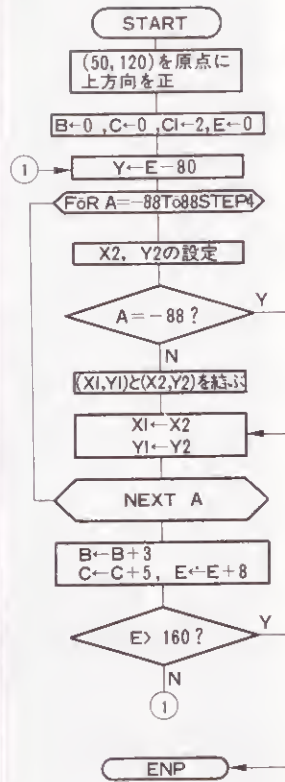 START
(50,120)を原点に
上方向を正
B←0 ,C←0 ,C1←2,E←0
1
Y←E-80
FOR A=-88TO88STEP4
X2, Y2の設定
A=-88?
Y
N
(X1,Y1)と(X2,Y2)を結ぶ
X1←X2
Y1←Y2
NEXT A
B←B+3
C←C+5, E←E+8
E> 160?
Y
N
1
ENP